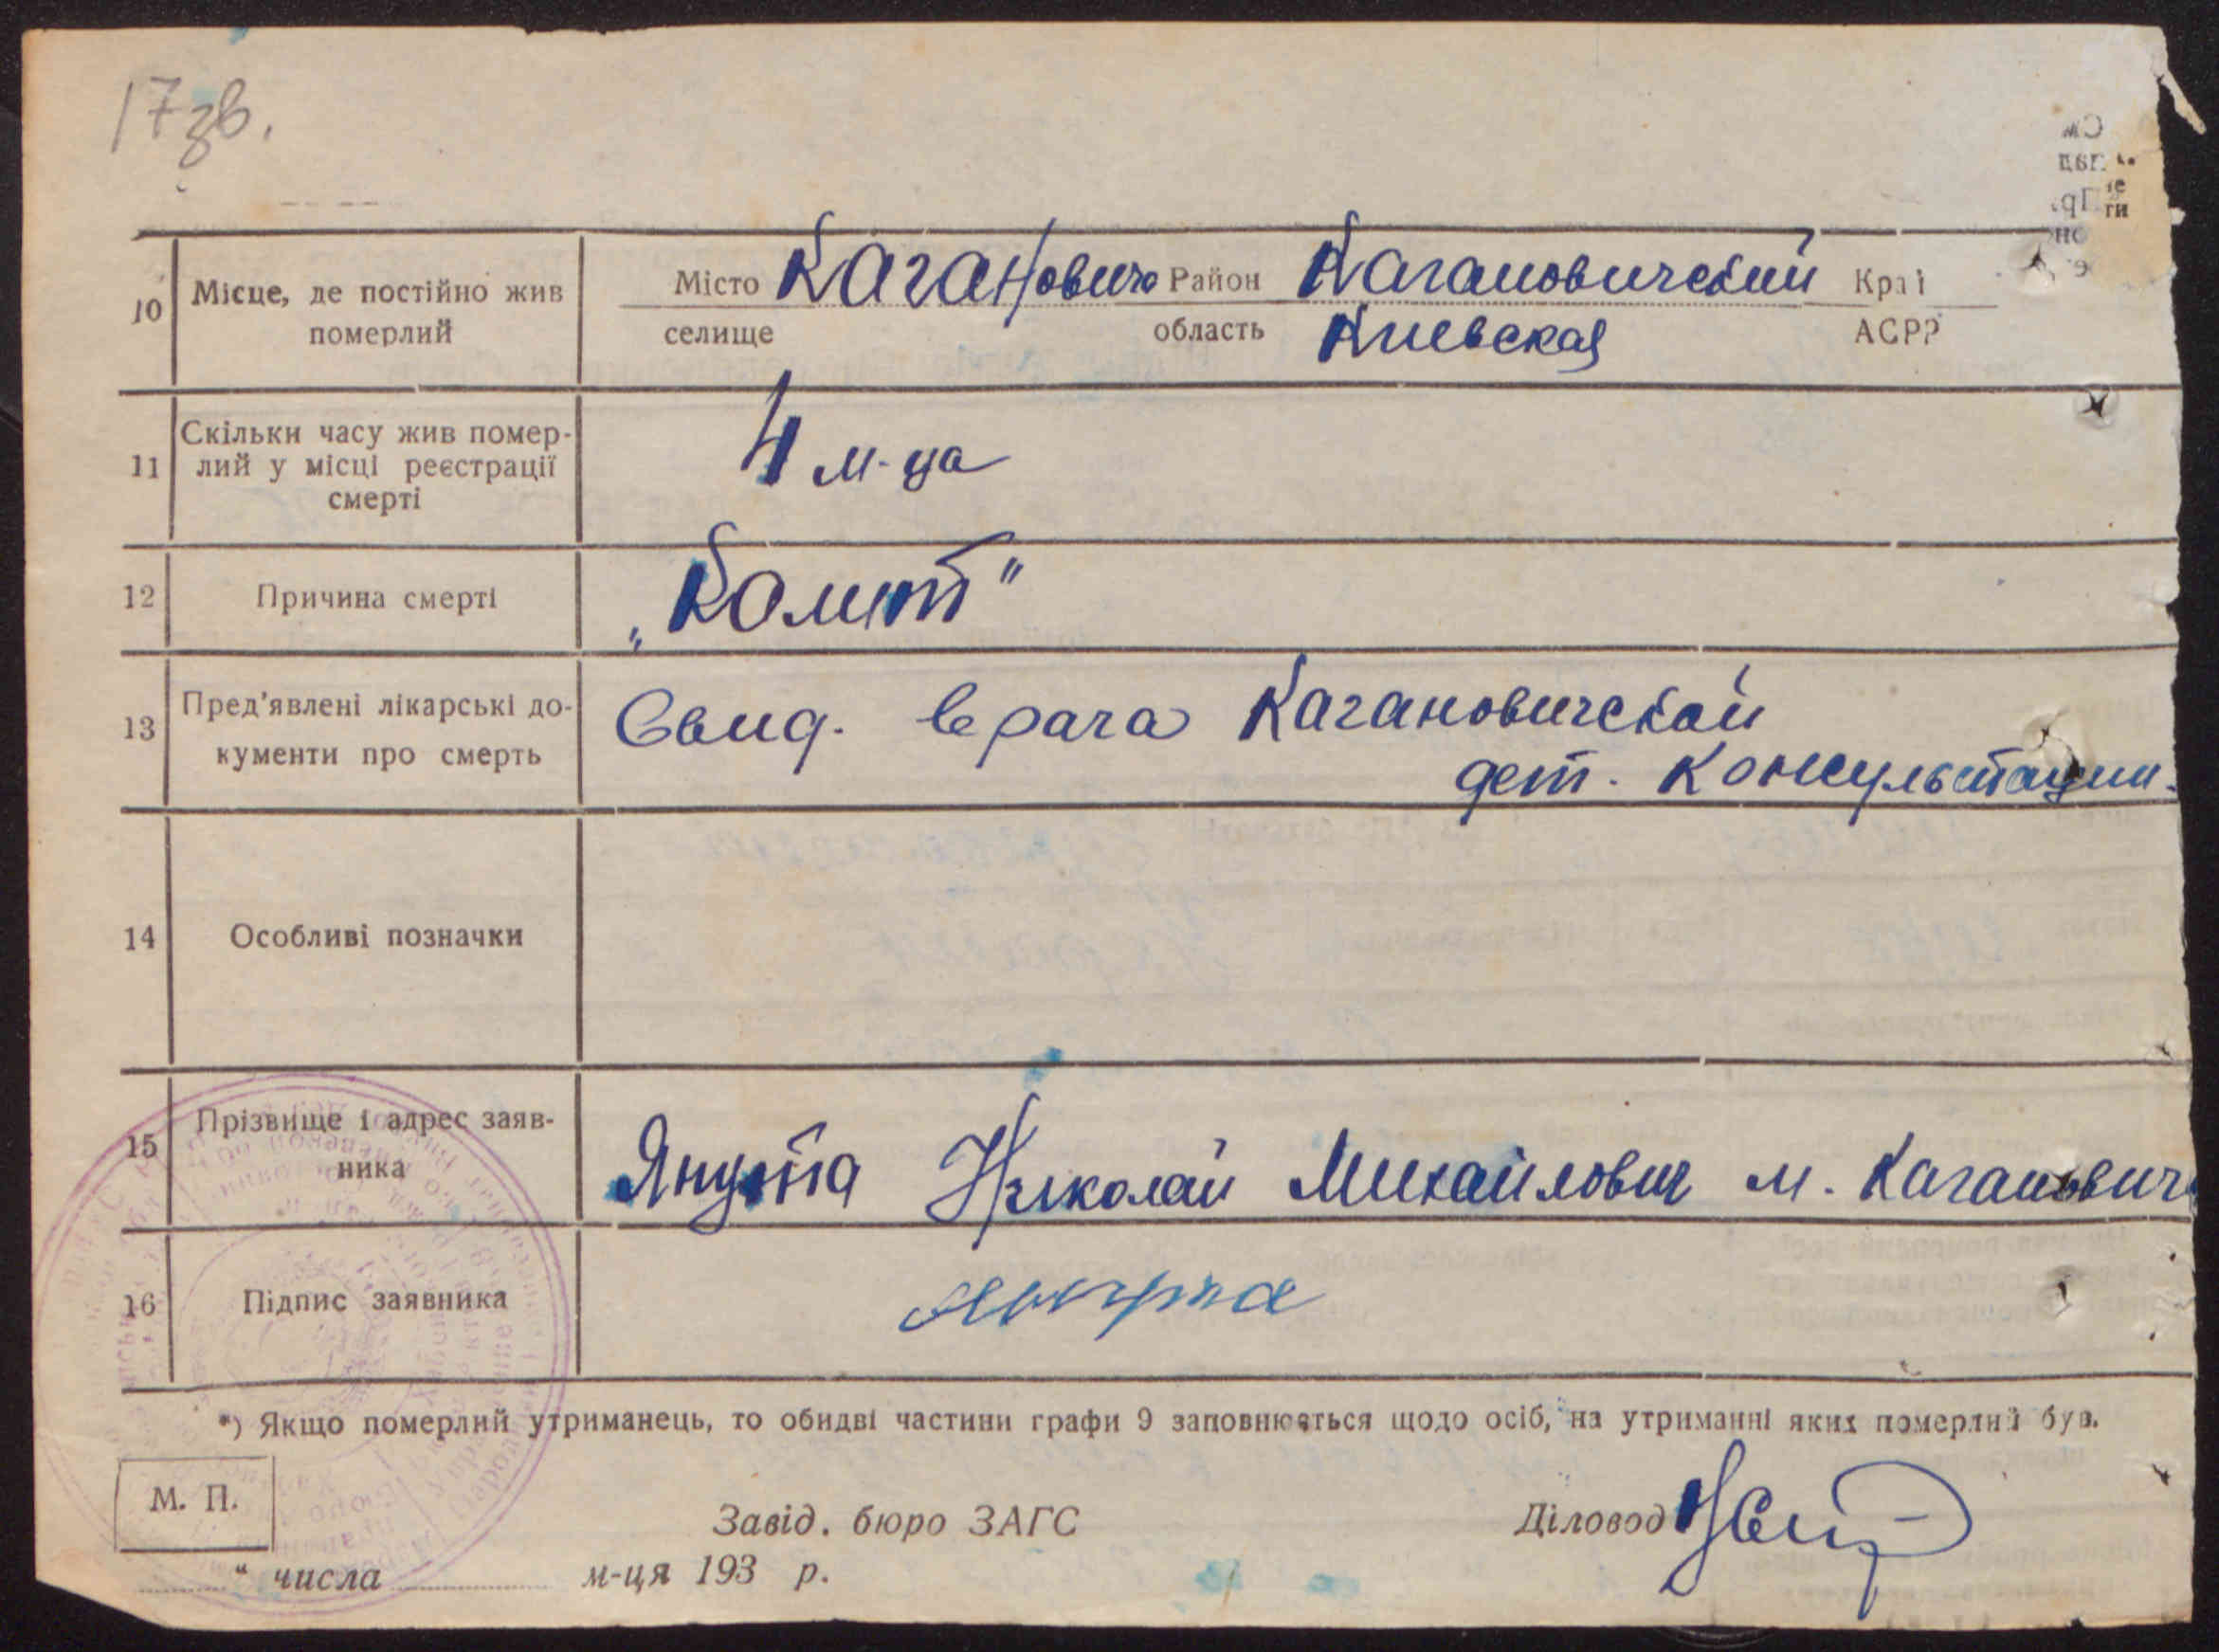 17 зв.
10 Місце, де постійно жив померлий
Місто Каганович Район Кагановический Край
селище область Киевская АСРР
11 Скільки часу жив помер-
лий у місці реєстрації
смерті
4 м-ца
12 Причина смерті
„Колит"
13 Пред'явлені лікарські до-
кументи про смерть
Свид. врача Кагановической
дет. консультации.
14 Особливі позначки
15 Прізвище і адрес заяв-
ника
Янута Николай Михайлович м. Каганович
16 Підпис заявника
Янута
*) Якщо померлий утриманець, то обидві частини графи 9 заповнюється щодо осіб, на утриманні яких померлий був.
М. П.
Завід. бюро ЗАГС Діловод
" числа м-ця 193 р.